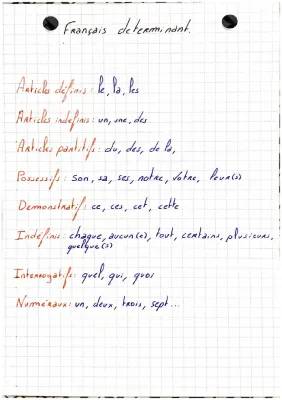 Français determinant.
Articles définis : le, la, les
Articles indéfinis : un, une, des
Articles partitifs : du, des, de la,
Possessifs : son, sa, ses, notre, votre, leur(s)
Demonstratif : ce, ces, cet, cette
Indéfinis : chaque, aucun(e), tout, certains, plusieurs,
quelque(s)
Interrogatifs : quel, qui, quoi
Numéraux : un, deux, trois, sept...